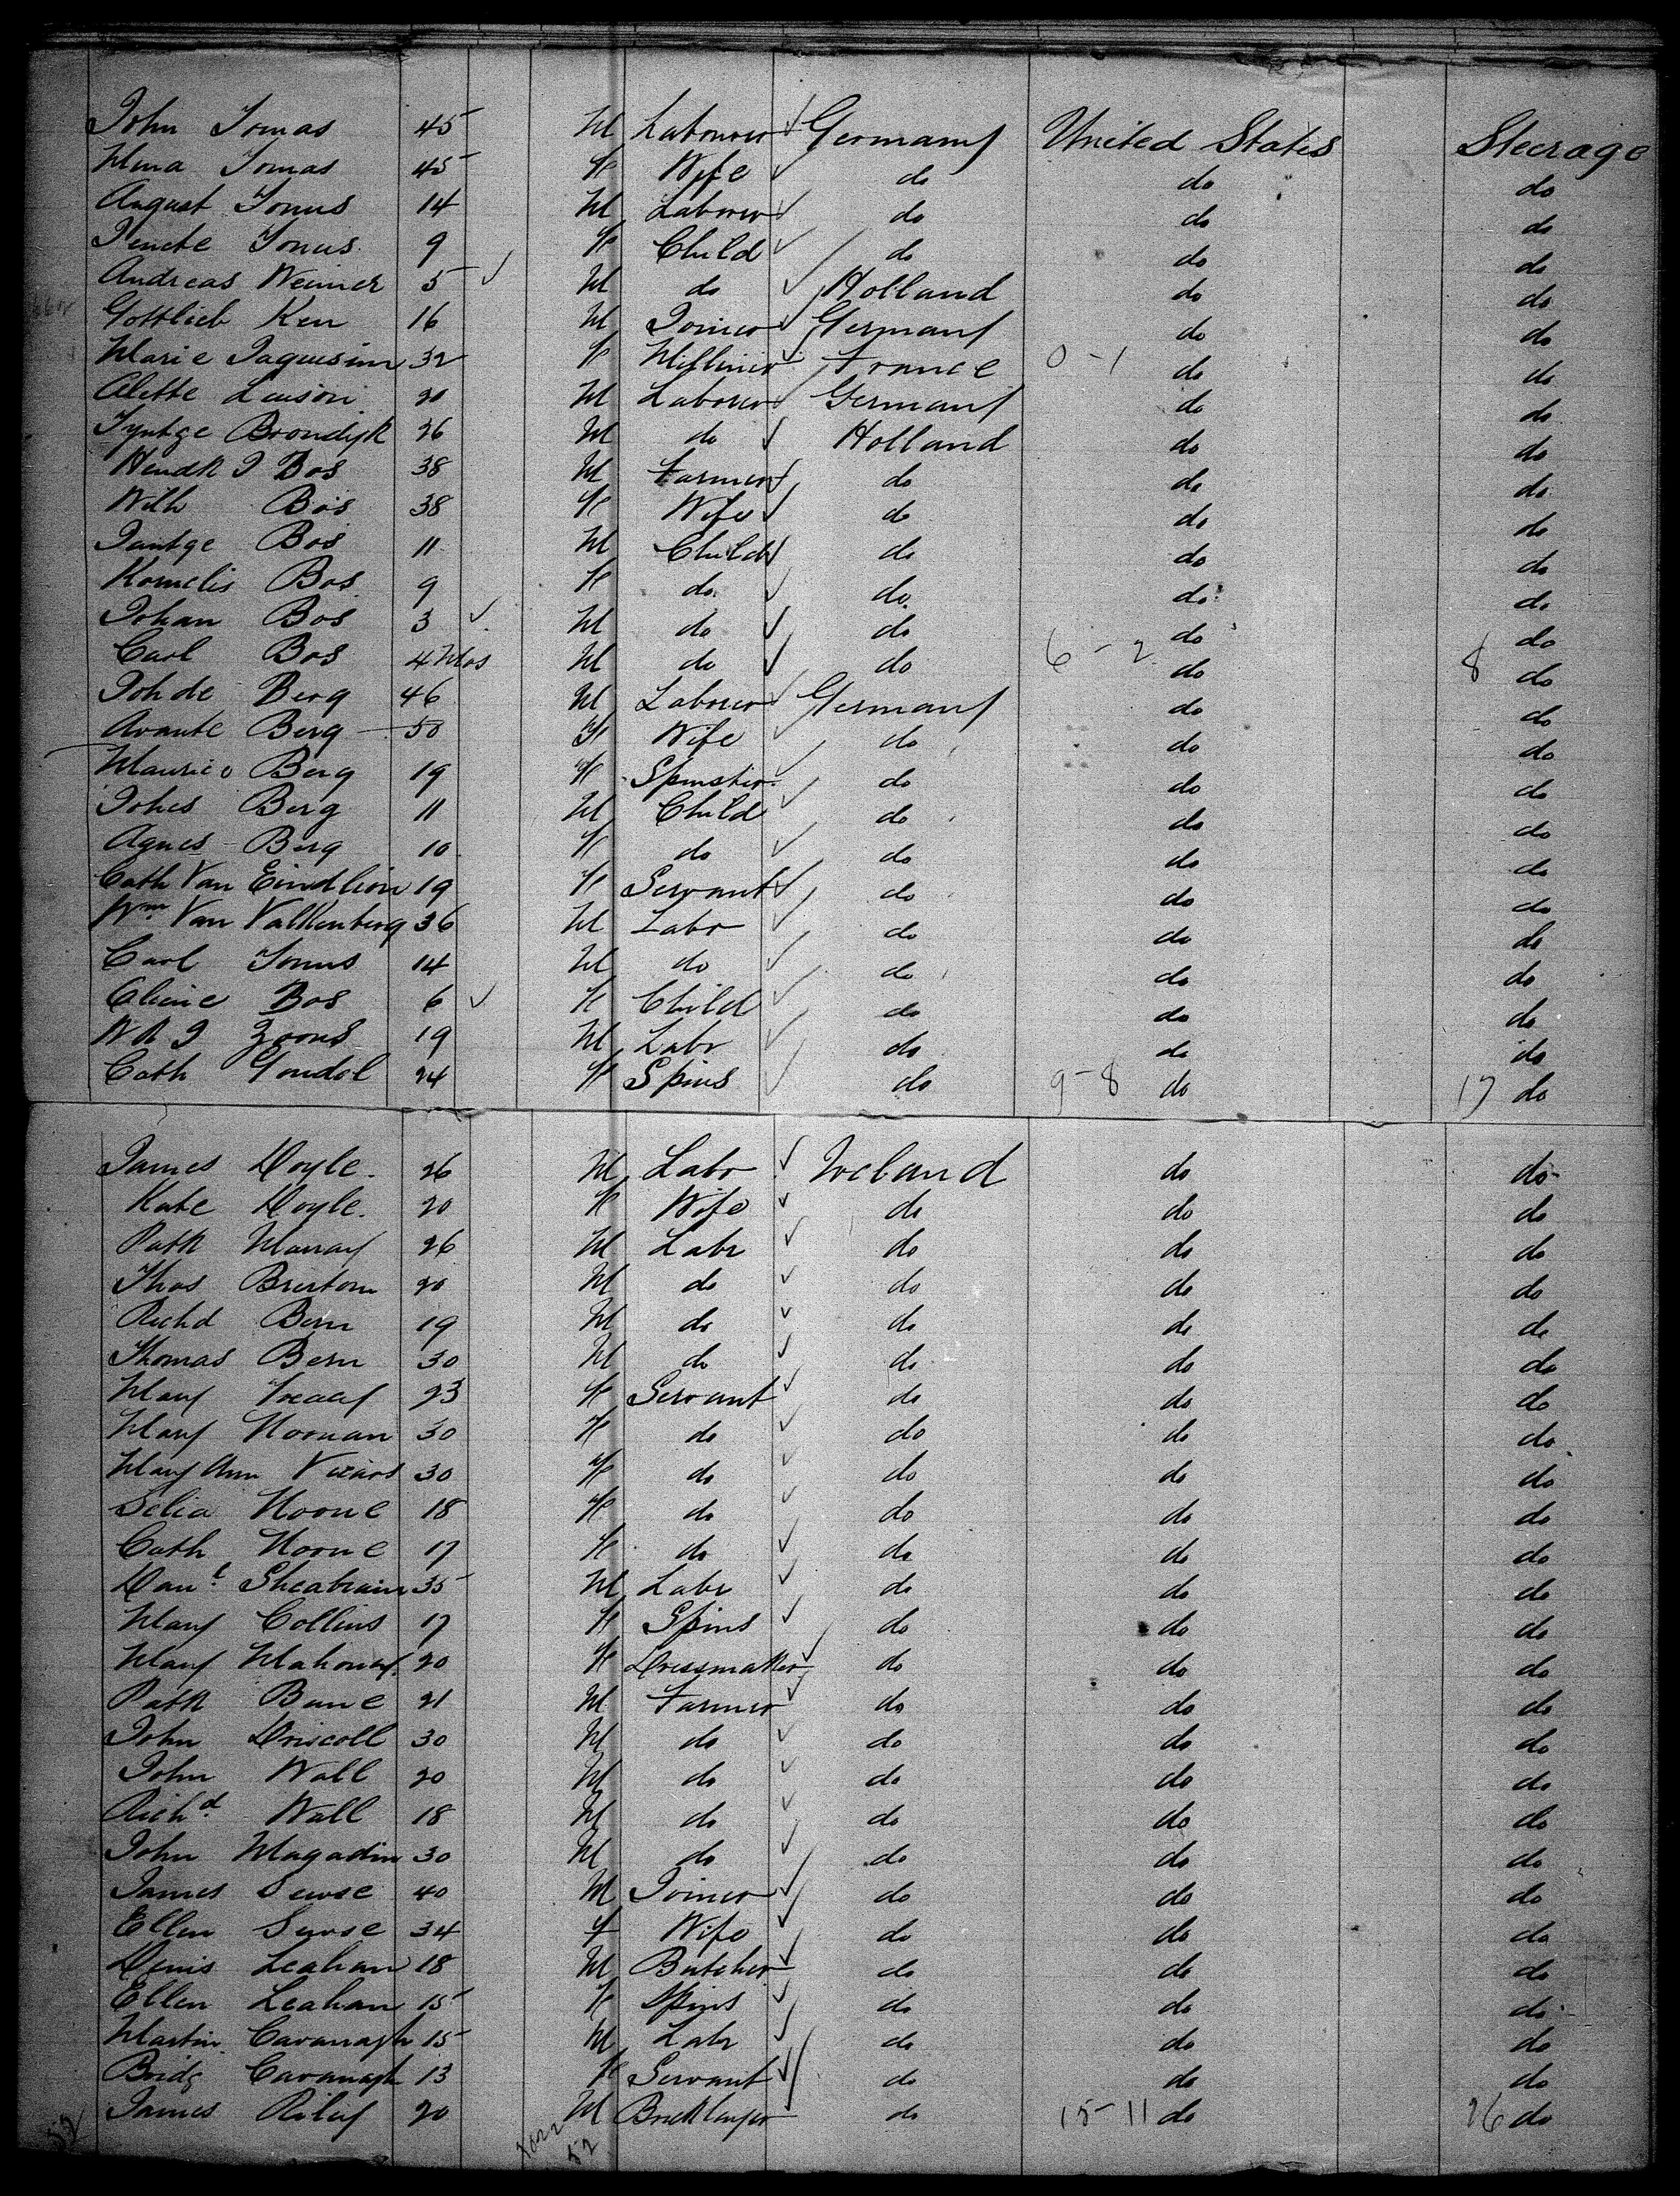 John Tomas 45 M Labourer ✓ Germany United States Steerage
Mina Tomas 45 F Wife ✓ do do do
August Tomas 14 M Laborer ✓ do do do
9 F Child ✓ do do do
Andreas Weimer 5 ✓ M do ✓ Holland do do
Gottlieb Ken 16 M Joiner ✓ Germany do do
Marie Jaquesim 32 F Milliner ✓ France 0-1 do do
Alette 20 M Laborer ✓ Germany do do
Tyntge Brondijk 26 M do ✓ Holland do do
Hendk J Bos 38 M Farmer ✓ do do do
Wilh Bos 38 F Wife ✓ do do do
Jantge Bos 11 M Child ✓ do do do
Kornelis Bos 9 F do ✓ do do do
Johan Bos 3 ✓ M do ✓ do do do
Carl Bos 4 Mos M do ✓ do 6-2 do 8 do
Joh de Berg 46 M Laborer ✓ Germany do do
Avante Berg 50 F Wife ✓ do do do
Maurice Berg 19 F Spinster ✓ do do do
Johes Berg 11 M Child ✓ do do do
Agnes Berg 10 F do ✓ do do do
Cath Van 19 F Servant ✓ do do do
Wm Van Valkenberg 36 M Labr ✓ do do do
Carl Tomus 14 M do ✓ do do do
Bos 6 ✓ F Child ✓ do do do
W A J Zoons 19 M Labr ✓ do do do
Cath Goudol 24 F Spins ✓ do 9-8 do 17 do
James Doyle 26 M Labr ✓ Ireland do do
Kate Doyle 20 F Wife ✓ do do do
Patk Murray 26 M Labr ✓ do do do
Thos Brertom 20 M do ✓ do do do
Richd Bern 19 M do ✓ do do do
Thomas Bern 30 M do ✓ do do do
Mary 23 F Servant ✓ do do do
Mary Noonan 30 F do ✓ do do do
Mary Ann 30 F do ✓ do do do
Selia Noone 18 F do ✓ do do do
Cath Noone 17 F do ✓ do do do
Danl 35 M Labr ✓ do do do
Mary Collins 17 F Spins ✓ do do do
Mary Mahoney 20 F Dressmaker ✓ do do do
Patk Bane 21 M Farmer ✓ do do do
John Driscoll 30 M do ✓ do do do
John Wall 20 M do ✓ do do do
Richd Wall 18 M do ✓ do do do
John Magadin 30 M do ✓ do do do
James 40 M Joiner ✓ do do do
Ellen 34 F Wife ✓ do do do
Denis Leahan 18 M Butcher ✓ do do do
Ellen Leahan 15 F Spins ✓ do do do
Martin Cavanagh 15 M Labr ✓ do do do
Bridg Cavanagh 13 F Servant ✓ do do do
James Riley 20 M Bricklayer do 15-11 do 26 do
52 52